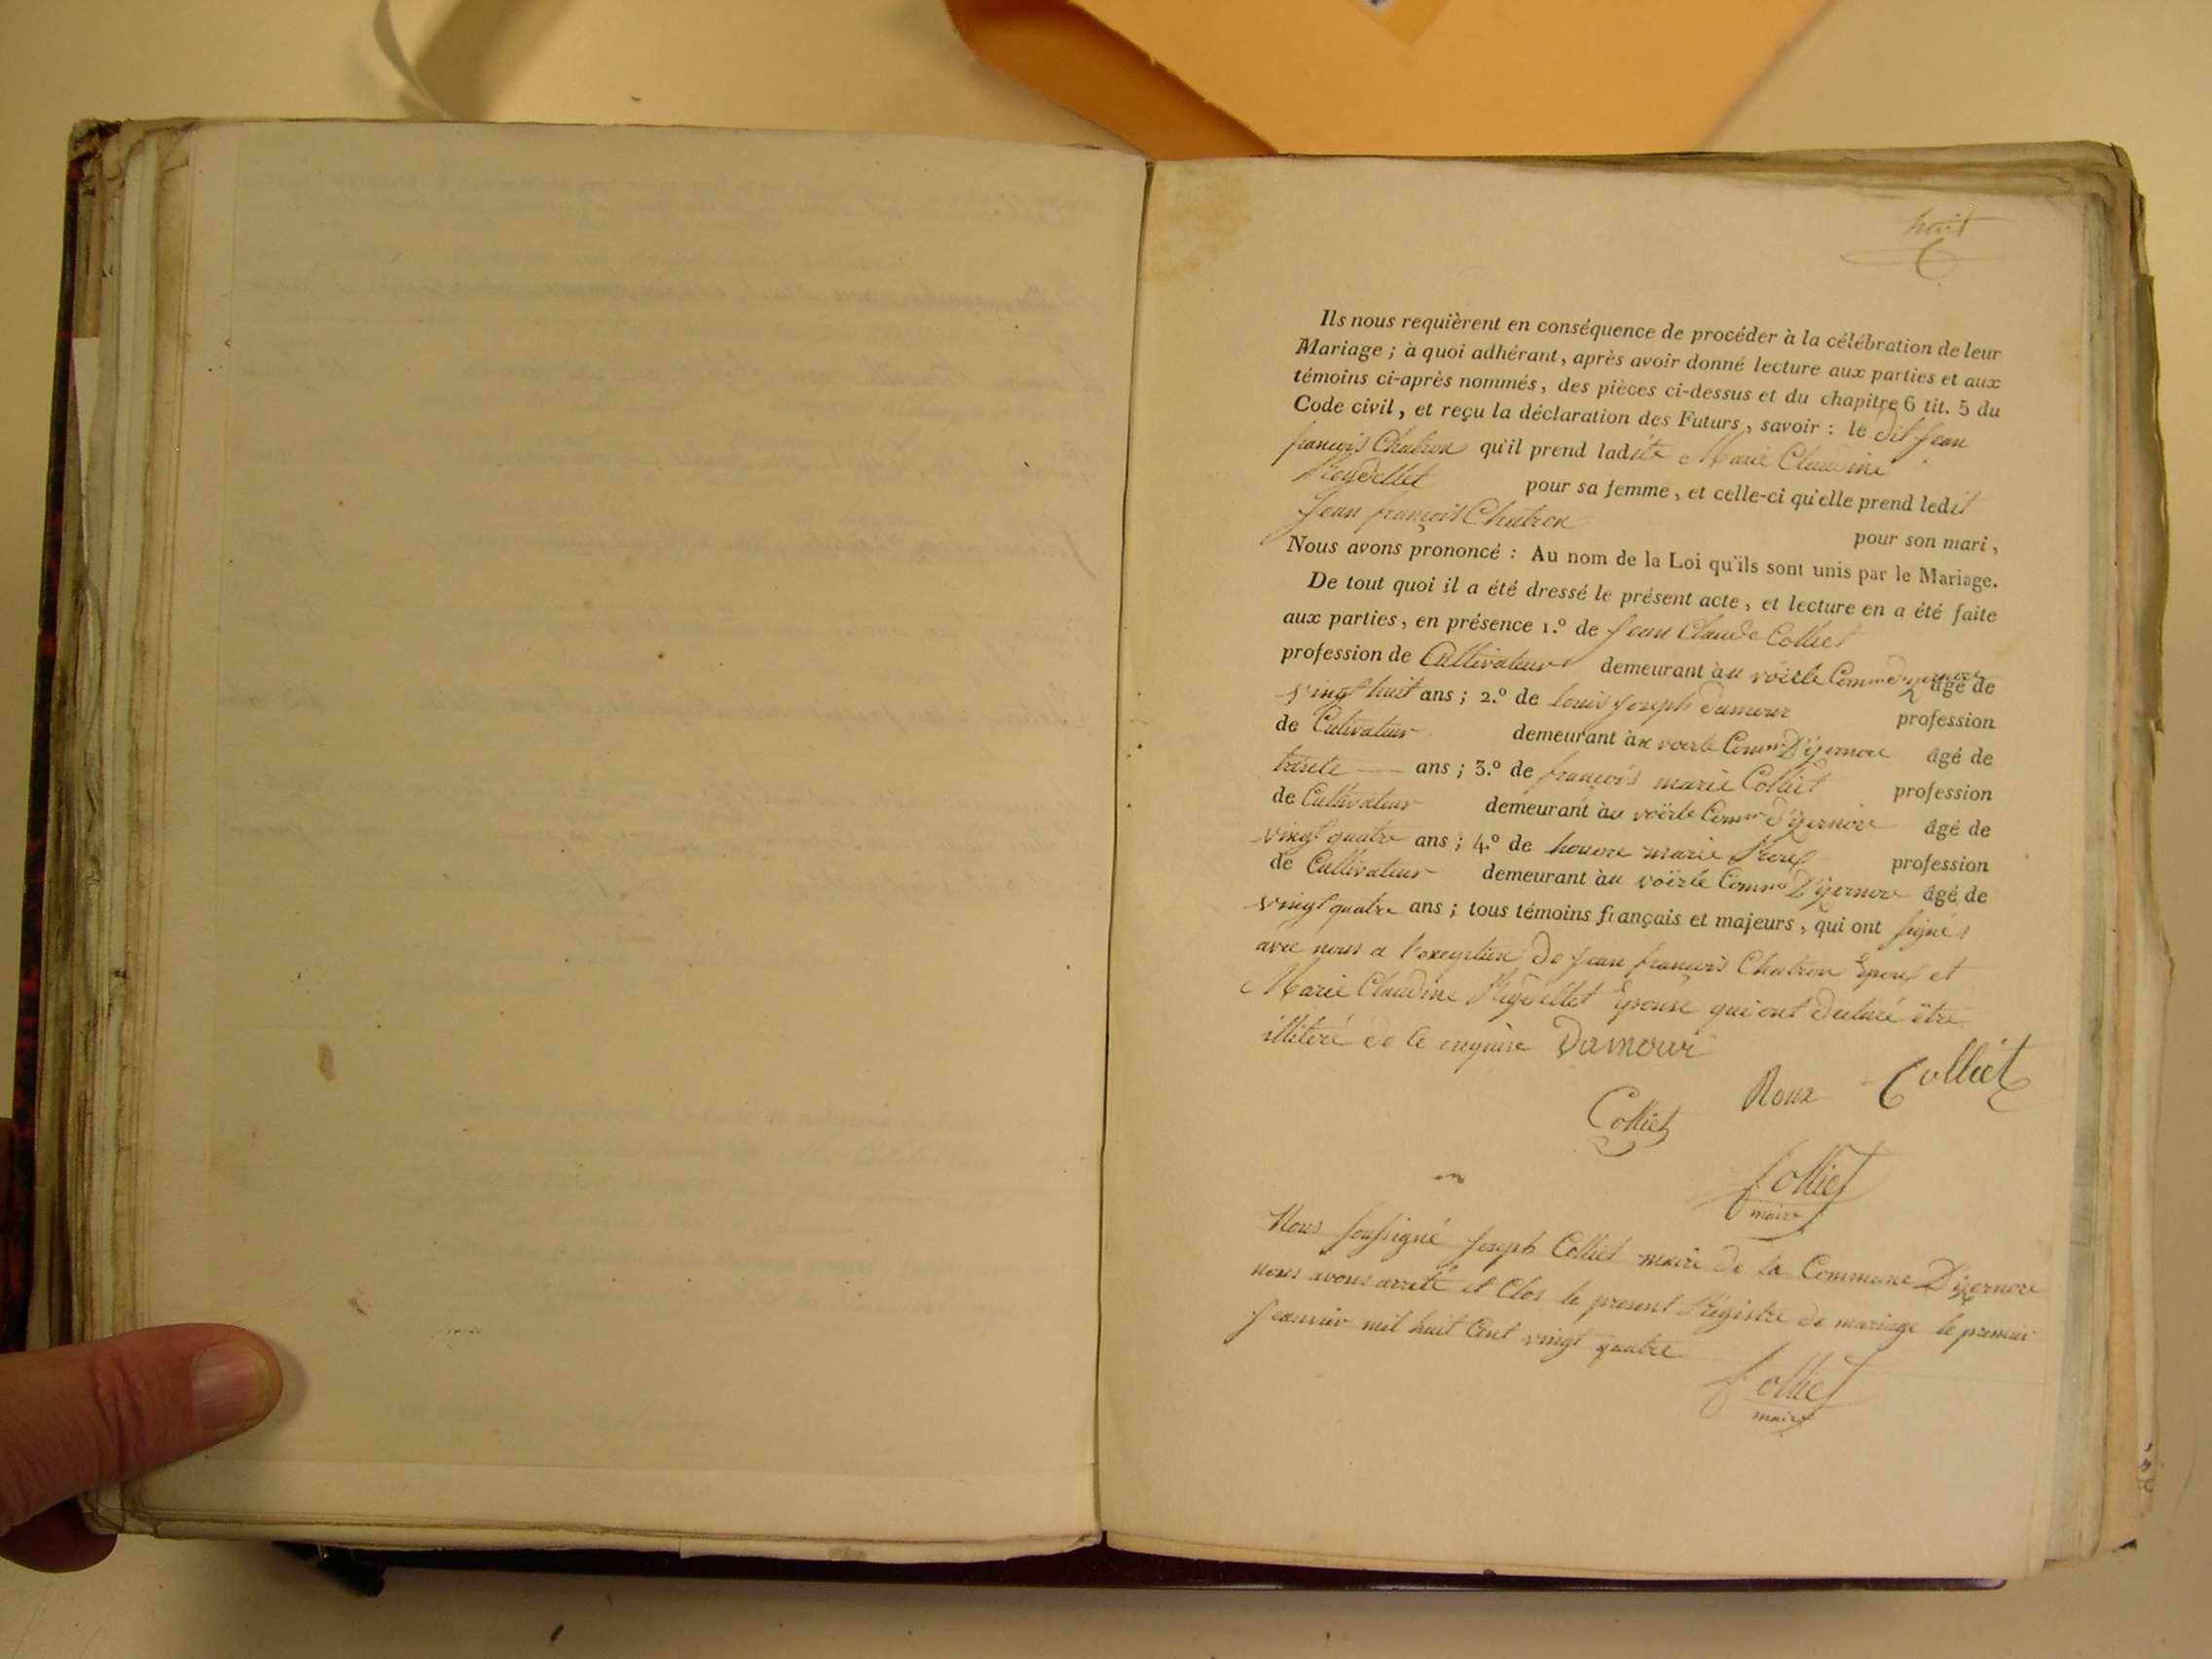 huit
Ils nous requièrent en conséquence de procéder à la célébration de leur
Mariage ; à quoi adhérant, après avoir donné lecture aux parties et aux
témoins ci-après nommés, des pièces ci-dessus et du chapitre 6 tit. 5 du
Code civil, et reçu la déclaration des Futurs, savoir : le dit jean
françois Chatron qu'il prend ladite Marie Claudine
Reydellet pour sa femme, et celle-ci qu'elle prend ledit
Jean françois Chatron pour son mari,
Nous avons prononcé : Au nom de la Loi qu'ils sont unis par le Mariage.
De tout quoi il a été dressé le présent acte, et lecture en a été faite
aux parties, en présence 1.º de jean Claude Colliet
profession de Cultivateur demeurant à au voërle Comne d'yzernore âgé de
vingt huit ans ; 2.º de louis joseph damour profession
de Cultivateur demeurant à au voerle Comne D'yzernore âgé de
trente ans ; 3.º de françois marie Colliet profession
de Cultivateur demeurant à au voërle Comne d'yzernore âgé de
vingt quatre ans ; 4.º de honore marie Roux profession
de Cultivateur demeurant à au voërle Comne D'yzernore âgé de
vingt quatre ans ; tous témoins français et majeurs, qui ont signés
avec nous a l'exeption de jean françois Chatron Epoux et
Marie Claudine Reydellet Epouse qui ont declaré être
illiteré de ce enquise Damour
Colliet Roux Colliet
Colliet
maire
Nous soussigné joseph Colliet maire de la Commune D'izernore
nous avons arreté et Clos le present Régistre de mariage le premier
jeanvier mil huit Cent vingt quatre
Colliet
maire